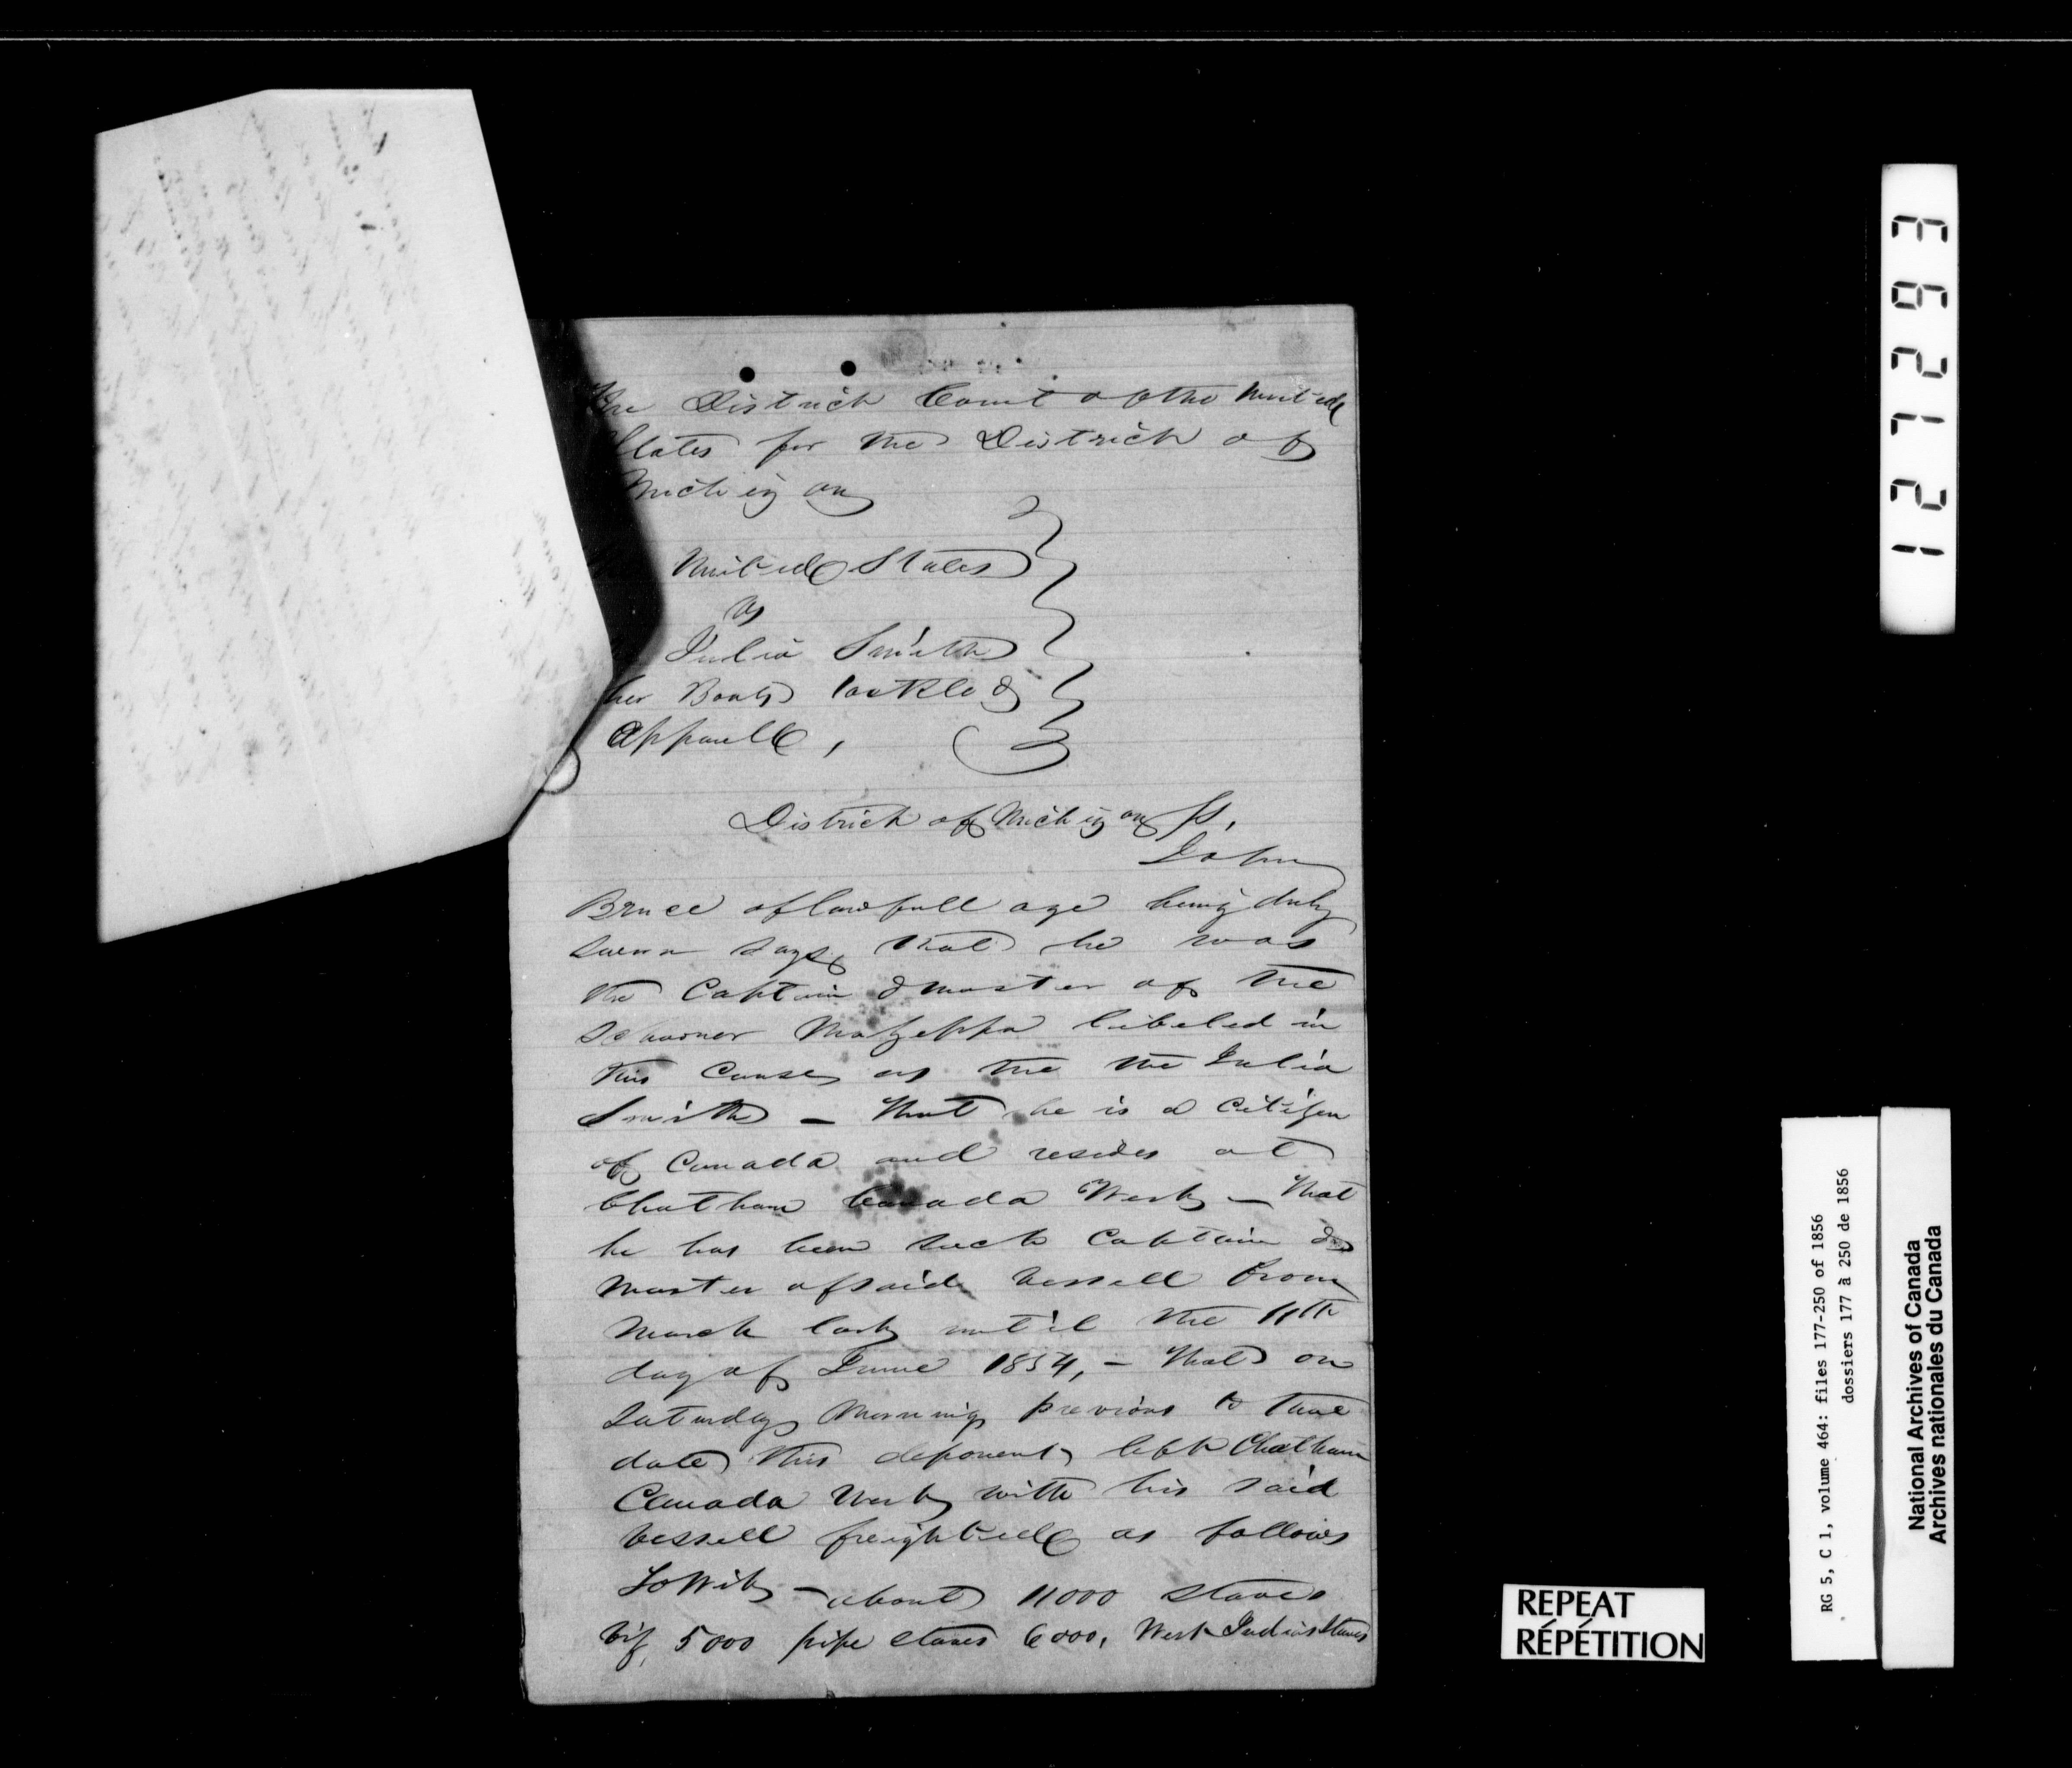 The District Court of the United
States for the District of
Michigan
United States
vs
Julia Smith
her Boats tackle &
Apparell,
District of Michigan ss.
John
Bruce of lawfull age being duly
sworn says, that he was
the Captain & master of the
schooner Mazeppa libeled in
this cause as the the Julia
Smith – that he is a citizen
of Canada and resides at
Chatham Canada West – that
he has been such Captain &
master of said vessell from
March last until the 11th
day of June 1854, – that on
Saturday Morning previous to that
date this deponent left Chatham
Canada West with his said
vessell freighted as follows
To Wit – about 11000 staves
viz, 5000 pipe staves 6000, West Indias Staves
127293
RG 5, C 1, volume 464: files 177-250 of 1856
dossiers 177 à 250 de 1856
National Archives of Canada
Archives nationales du Canada
REPEAT
RÉPÉTITION